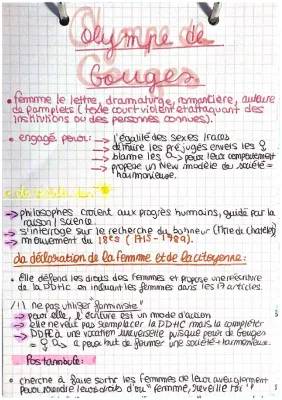 Olympe de
Gouges
• femme de lettre, dramaturge, romancière, auteure
de pamplets (texte court violent et attaquant des
institutions ou des personnes connues).
• engagé pour : l'égalité des sexes / races
→ détruire les préjugés envers les ♀
→ blame les ♀ pour leur comportement
→ propose un new modèle de société =
harmonieuse.
→ philosophes croient aux progrès humains, guidé par la
raison / science.
→ s'interroge sur le recherche du bonheur (Mme du chatelet)
→ mouvement du 18e s (1715 - 1789).
la déclaration de la femme et de la citoyenne :
• elle défend les droits des femmes et propose une réécriture
de la DDHC en incluant les femmes dans les 17 articles.
/!\ ne pas utiliser "féministe"
→ pour elle, l'écriture est un mode d'action
→ elle ne veut pas remplacer la DDHC mais la compléter
→ DDFC à une vocation universelle puisque pour de Gouges
= ♀ a pour but de former une société + harmonieuse.
Postambule :
• cherche à faire sortir les femmes de leur aveuglement
pour rendre leurs droits "femme, réveille toi"